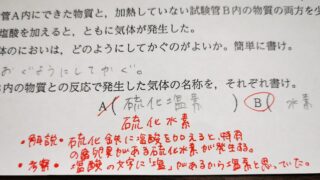 管A内にできた物質と，加熱していない試験管B内の物質の両方を少
塩酸を加えると，ともに気体が発生した。
体のにおいは，どのようにしてかぐのがよいか。簡単に書け。
おぐようにしてかぐ。
B内の物質との反応で発生した気体の名称を，それぞれ書け。
A（硫化塩素）（B）（水素
硫化水素
・解説・硫化鉄に塩酸を加えると、特有
の腐卵臭がある硫化水素が発生する。
・考察・塩酸の文字に「塩」があるから塩素と思っていた。